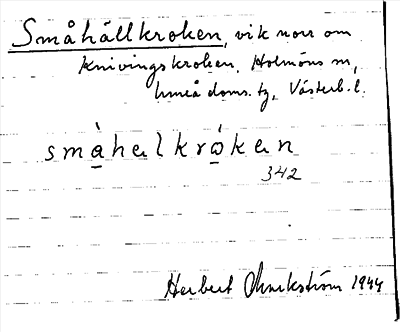 Småhällkroken, vik norr om
Knivingskroken, Holmöns sn,
Umeå doms. tg, Västerb. l.
småhalkrókan
342
Herbert Markström 1944